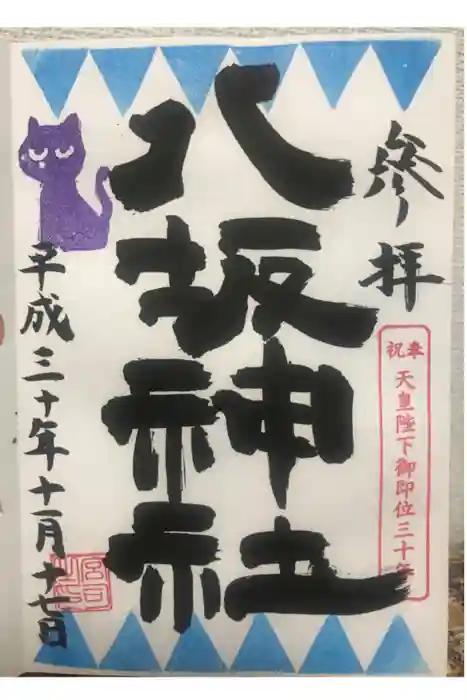 參拝
奉祝
天皇陛下御即位三十年
八坂神社
平成三十年十一月十七日